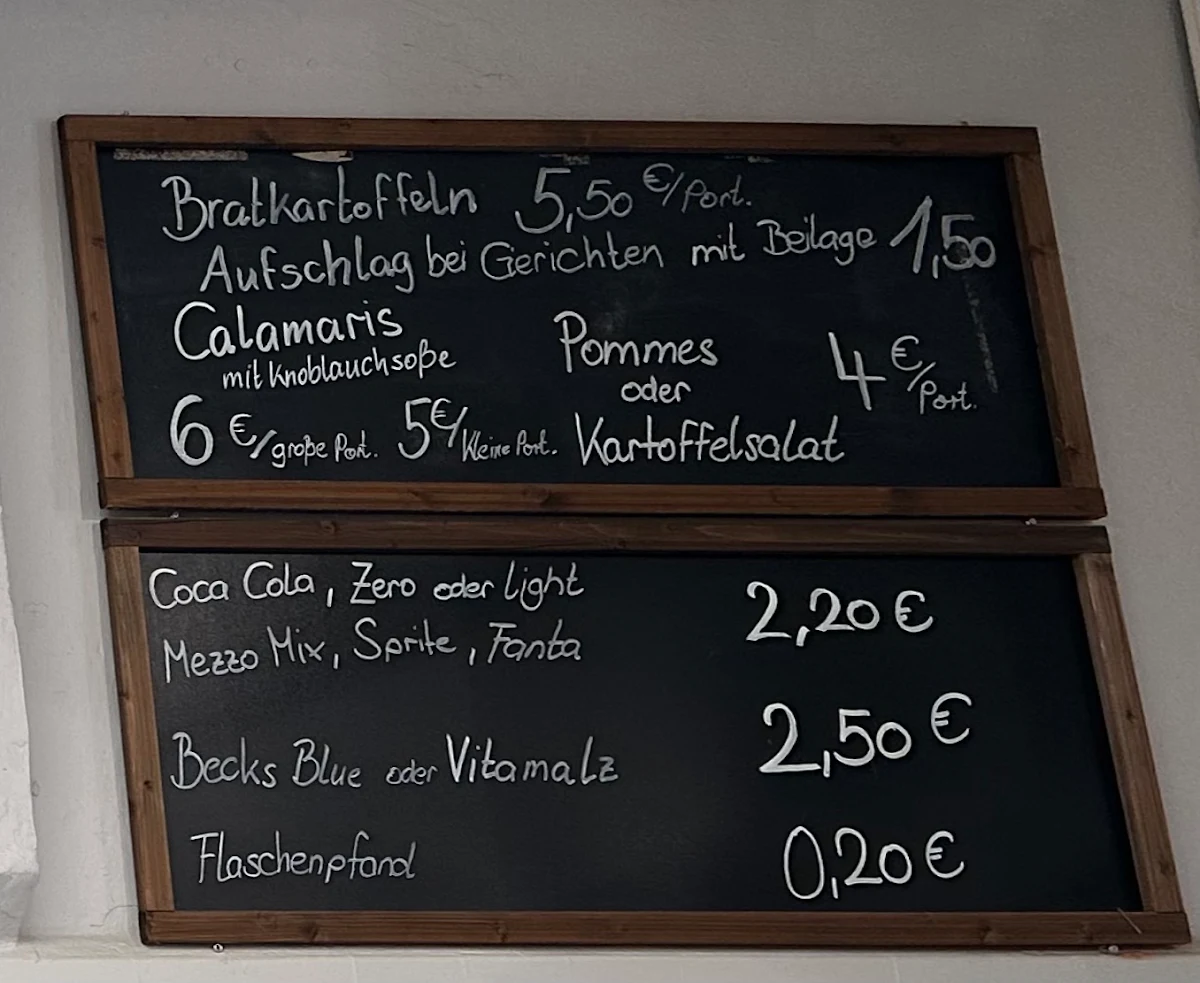 Bratkartoffeln 5,50 €/Port.
Aufschlag bei Gerichten mit Beilage 1,50
Calamaris
mit Knoblauchsoße
6 €/große Port. 5€/kleine Port.
Pommes
oder
Kartoffelsalat
4 €/Port.
Coca Cola, Zero oder light 2,20 €
Mezzo Mix, Sprite, Fanta
Becks Blue oder Vitamalz 2,50 €
Flaschenpfand 0,20 €